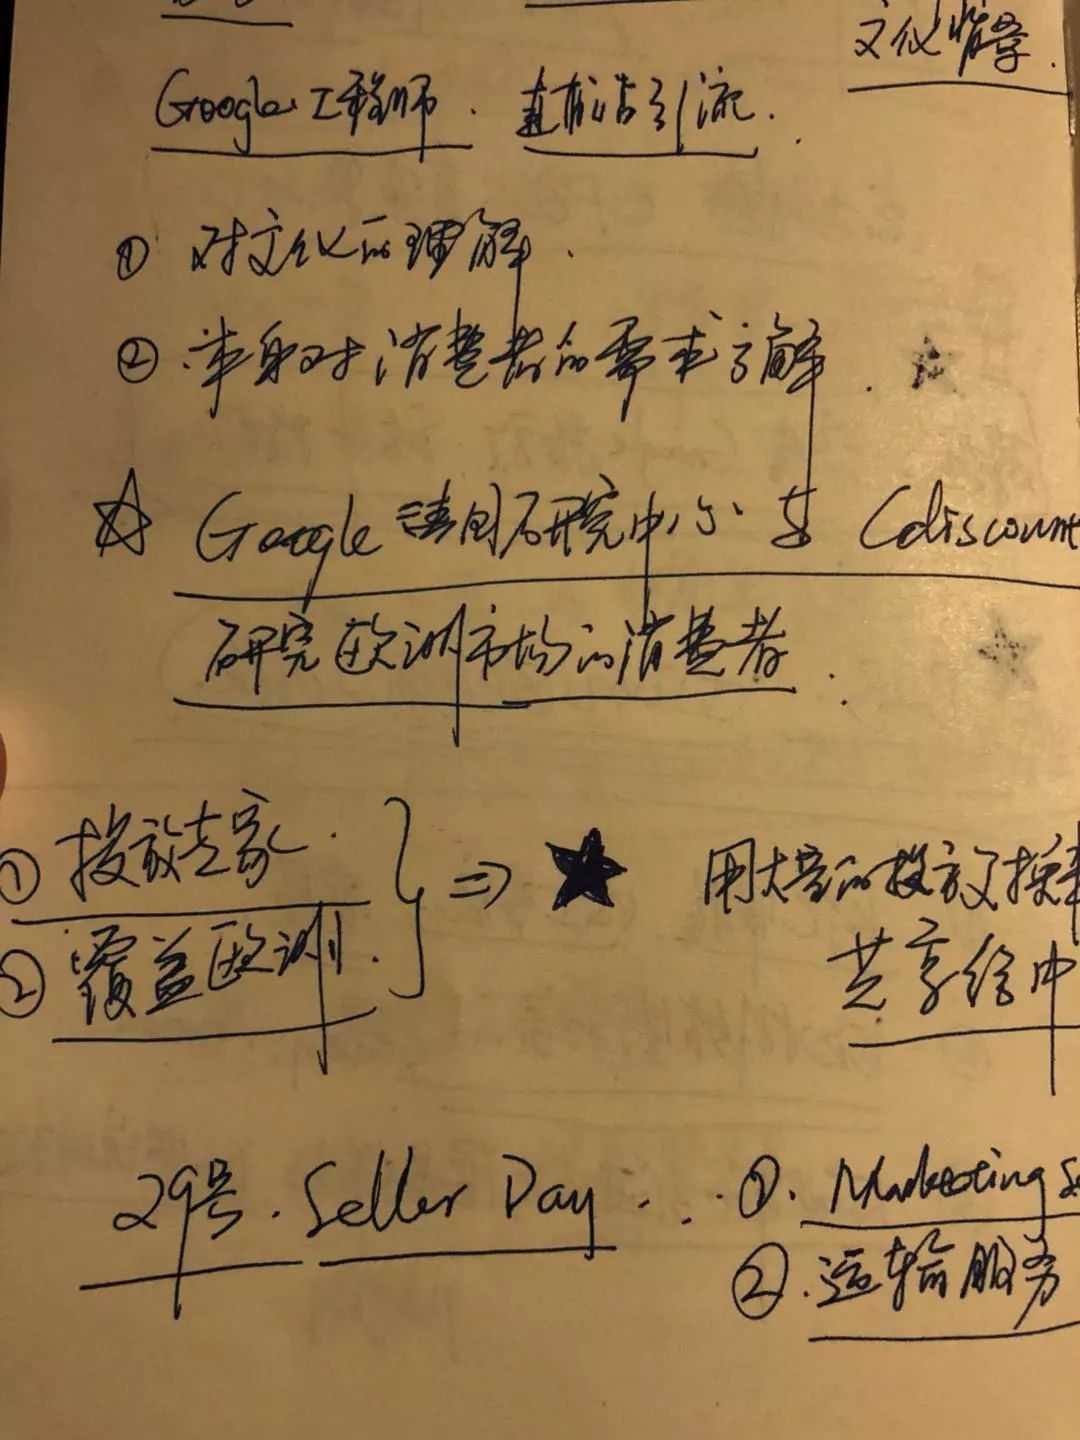 文化背景.
Google 工程师. 直接站引流.
① 对文化的理解.
② 本身对消费者的需求了解.
☆ Google 法国研究中心与 Cdiscount
研究欧洲市场的消费者.
① 投放专家.
② 覆盖欧洲.
⇒ ★ 用大量的投放
共享给中
29号. Seller Day ... ①. Marketing S
②. 运输服务